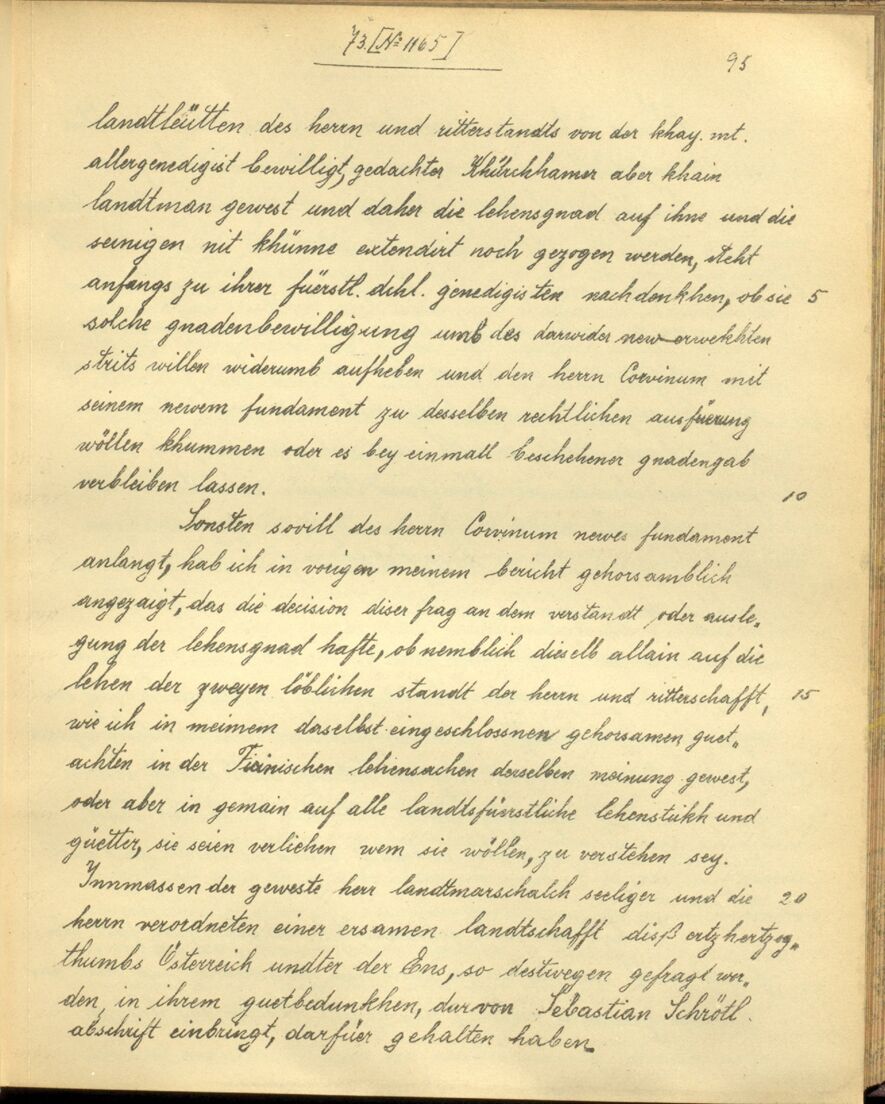 73. [№ 1165]
95
landtleütten des herrn und ritterstandts von der khay. mt.
allergenedigist bewilligt, gedachter Khürchhamer aber khain
landtman gewest und daher die lehensgnad auf ihne und die
seinigen nit khünne extendirt noch gezogen werden, steht
anfangs zu ihrer füerstl. dchl. genedigisten nachdenkhen, ob sie 5
solche gnadenbewilligung umb des darwider new erwekhten
strits willen widerumb aufheben und den herrn Corvinum mit
seinem newem fundament zu desselben rechtlichen ausfüerung
wöllen khummen oder es bey einmall beschehener gnadengab
verbleiben lassen.
10
Sonsten sovill des herrn Corvinum newes fundament
anlangt, hab ich in vorigen meinem bericht gehorsamblich
angezaigt, das die decision diser frag an dem verstandt oder ausle„
gung der lehensgnad hafte, ob nemblich dieselb allain auf die
lehen der zweyen löblichen standt der herrn und ritterschafft, 15
wie ich in meimem daselbst eingeschlossnen gehorsamen guet„
achten in der Fieinischen lehensachen derselben meinung gewest,
oder aber in gemain auf alle landtsfüerstliche lehenstükh und
güetter, sie seien verlichen wem sie wöllen, zu verstehen sey.
Innmassen der geweste herr landtmarschalch seeliger und die 20
herrn verordneten einer ersamen landtschafft disß ertzhertzog„
thumbs Österreich undter der Ens, so destwegen gefragt wor„
den, in ihrem guetbedunkhen, darvon Sebastian Schrötl.
abschrift einbringt, darfüer gehalten haben.